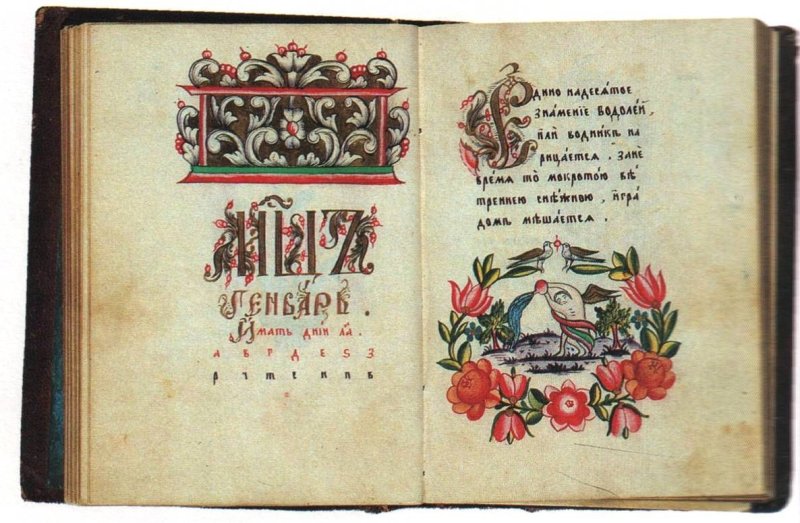 Мц҃ъ
Генварь.
Имать дній л҃а.
а в г д е ѕ з
Єдино надесѧтое
знаменіе водолей,
или водникъ на
рицаетсѧ. Зане
времѧ то мокротою вѣ
треннею снѣжною, и гра
домъ мѣшаетсѧ.